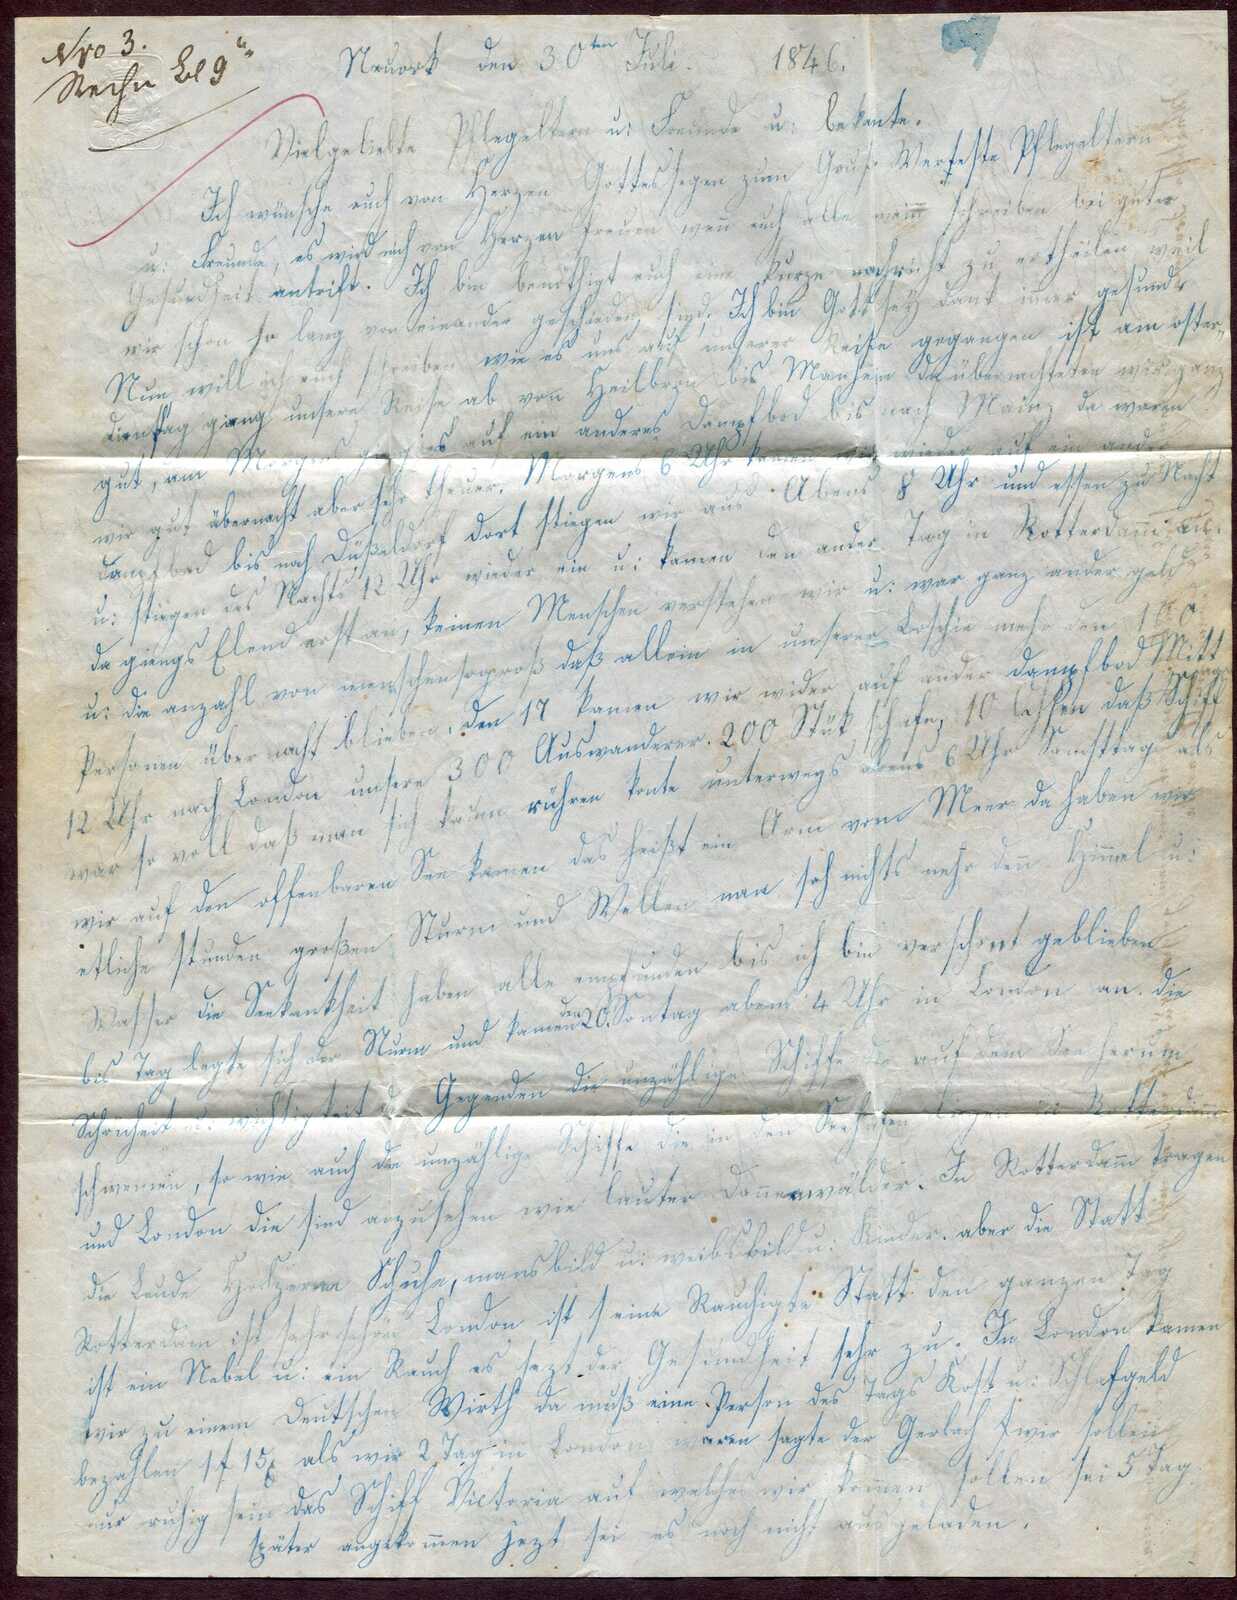 Nro 3.
Rechn Bl 9
Neuork den 30ten Juli. 1846.
Vielgeliebte Pflegeltern u: Freunde u: bekante.
Ich wünsche euch von Herzen Gottessegen zum Gruß Werfeste Pflegeltern
u: Freunde, es wird mich von Herzen freuen wen euch alle mein schreiben bei guter
Gesundheit antrift. Ich bin benöthigt euch eine kurze nachricht zu ertheilen weil
wir schon so lang von einander geschieden sind. Ich bin Gott sey dank imer gesund.
Nun will ich euch schreiben wie es uns auf unserer Reise gegangen ist am oster-
dienstag gieng unsere Reise ab von Heilbron bis Manheim da übernachteten wir ganz
gut, am Morgen gieng es auf ein anderes Dampfbod bis nach Mainz da waren
wir guf übernacht aber sehr theuer. Morgens 6 Uhr kamen wir wieder auf ein ander
Dampfbod bis nach Düßeldorf dort stiegen wir aus Abens 8 Uhr und essen zu Nacht
u: stiegen des Nachts 12 Uhr wieder ein u: kamen den ander Tag in Rotterdam an.
da giengs Elend erst an, keinen Menschen verstehen wir u: war ganz ander geld
u: die anzahl von menschen so groß daß allein in unserer Loschie mehr den 100
Personen über nacht blieben. den 17 kamen wir wider auf ander dampfbod Mittag
12 Uhr nach London unsere 300 Auswanderer. 200 Stük schafe, 10 daß Schiff
war so voll daß man sich kaum rühren konte unterwegs abens 6 Uhr Samsttag als
wir auf den offenbaren See kamen das heißt ein Arm vom Meer da haben wir
etliche stunden großen Sturm und Wellen man sah nichts mehr den Himel u:
Wasser die Seekankheit haben alle empfunden bis ich bin verschont geblieben
bis Tag legte sich der Sturm und kamen den 20. Sontag abens 4 Uhr in London an. die
Schönheit u: wichtigkeit der Gegenden die unzählige Schiffe die auf dem See herum
schwemen, so wie auch die unzählige Schiffe die in den Seehafen liegen in Rotterdam
und London die sind anzusehen wie lauter Dannenwälder. In Rotterdam tragen
die Leude Holzerne Schuhe, mansbild u: weibsbild u: Kinder. aber die Statt
Rotterdam ist sehr schön London ist eine Rauchigte Statt den ganzen Tag
ist ein Nebel u: ein Rauch es sezt der Gesundheit sehr zu. In London kamen
wir zu einem Deutschen Wirth da muß eine Person des Tags Kost u: Schlafgeld
bezahlen 1 f 15 x als wir 2 Tag in London waren sagte der Gerlach wir sollen
nur ruhig sein das Schiff Victoria auf welches wir kommen sollen sei 5 Tag
später angekommen jezt sei es noch nicht ausgeladen.